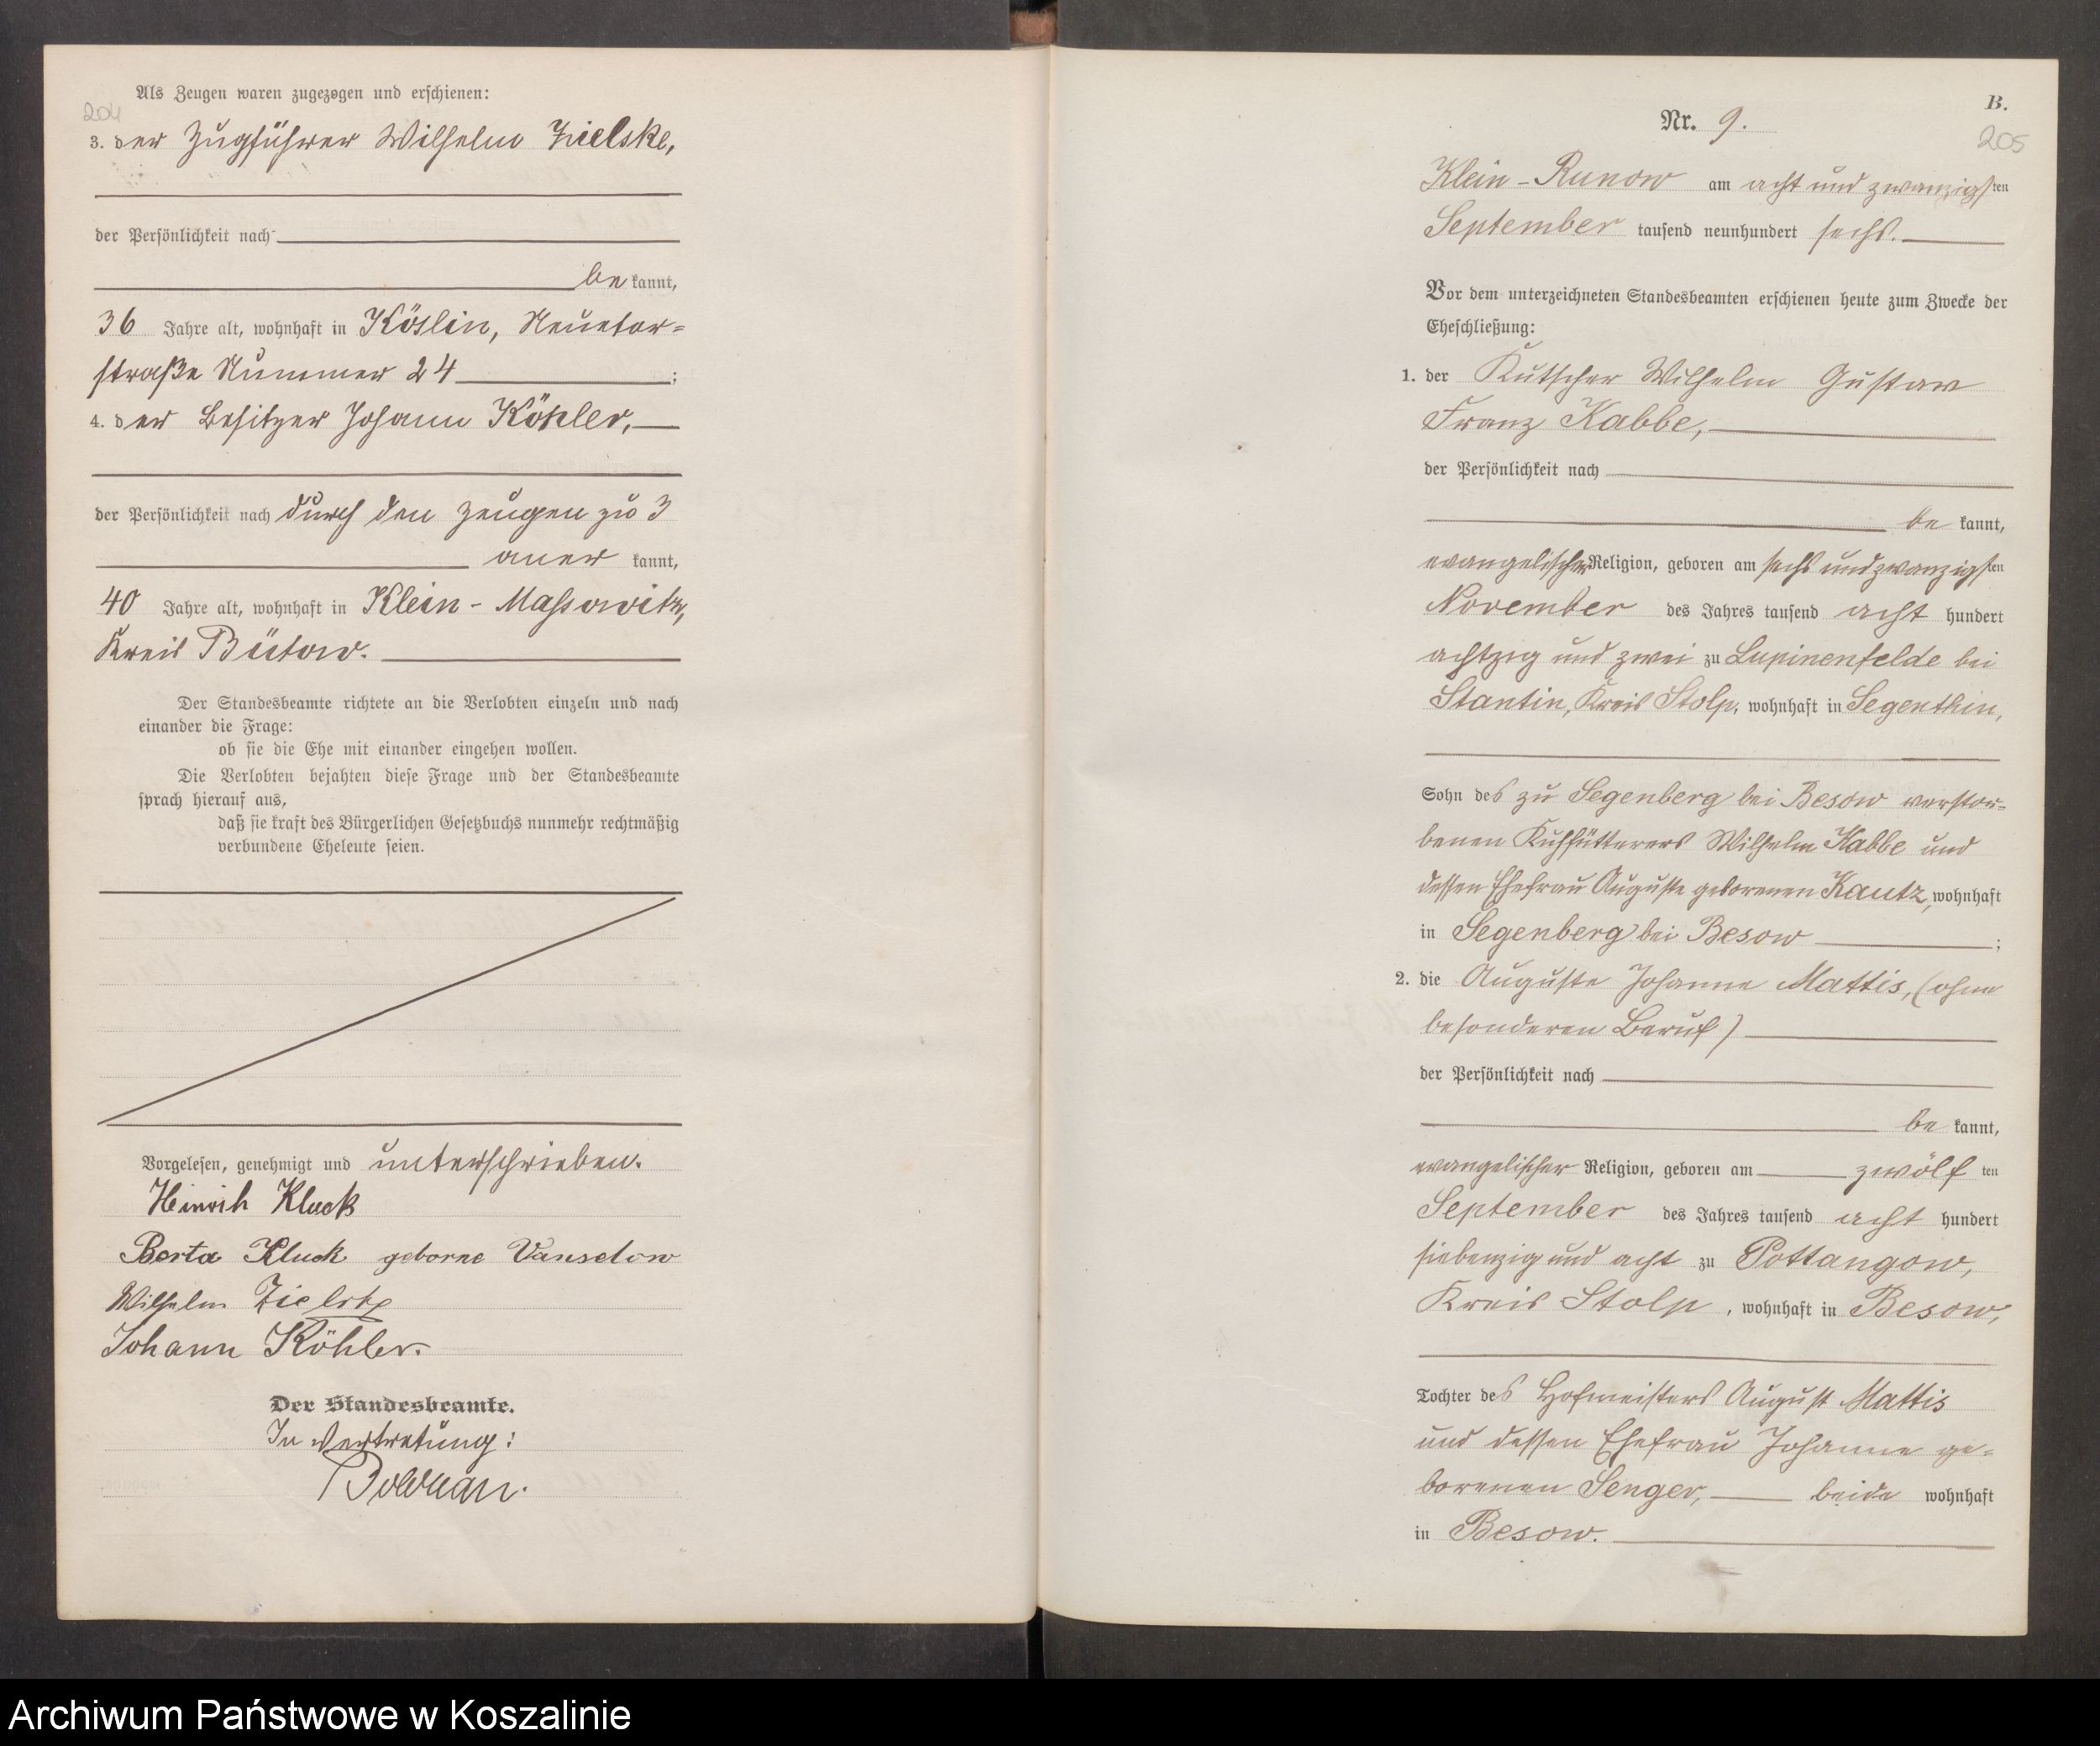 Als Zeugen waren zugezogen und erschienen:
204
3. der Zugführer Wilhelm Zielske,
der Persönlichkeit nach
be kannt,
36 Jahre alt, wohnhaft in Köslin, Neuetor-
straße Nummer 24 ;
4. der Besitzer Johann Köhler,
der Persönlichkeit nach durch den Zeugen zu 3
aner kannt,
40 Jahre alt, wohnhaft in Klein-Massowitz,
Kreis Bütow.
Der Standesbeamte richtete an die Verlobten einzeln und nach
einander die Frage:
ob sie die Ehe mit einander eingehen wollen.
Die Verlobten bejahten diese Frage und der Standesbeamte
sprach hierauf aus,
daß sie kraft des Bürgerlichen Gesetzbuchs nunmehr rechtmäßig
verbundene Eheleute seien.
Vorgelesen, genehmigt und unterschrieben.
Heinrih Kluck
Berta Kluck geborne Vanselow
Wilhelm Zielske
Johann Köhler.
Der Standesbeamte.
In Vertretung:
B.
Nr. 9.
205
Klein-Runow am acht und zwanzigsten
September tausend neunhundert sechs.
Vor dem unterzeichneten Standesbeamten erschienen heute zum Zwecke der
Eheschließung:
1. der Kutscher Wilhelm Gustav
Franz Kabbe,
der Persönlichkeit nach
be kannt,
evangelischer Religion, geboren am sechs und zwanzigsten
November des Jahres tausend acht hundert
achtzig und zwei zu Lupinenfelde bei
Stantin, Kreis Stolp, wohnhaft in Segenthin,
Sohn des zu Segenberg bei Besow verstor-
benen Kuhfütterers Wilhelm Kabbe und
dessen Ehefrau Auguste geborenen Kautz, wohnhaft
in Segenberg bei Besow ;
2. die Auguste Johanne Mattis, (ohne
besonderen Beruf)
der Persönlichkeit nach
be kannt,
evangelischer Religion, geboren am zwölf ten
September des Jahres tausend acht hundert
siebenzig und acht zu Pottangow,
Kreis Stolp, wohnhaft in Besow,
Tochter des Hofmeisters August Mattis
und dessen Ehefrau Johanne ge-
borenen Senger, beide wohnhaft
in Besow.
Archiwum Państwowe w Koszalinie